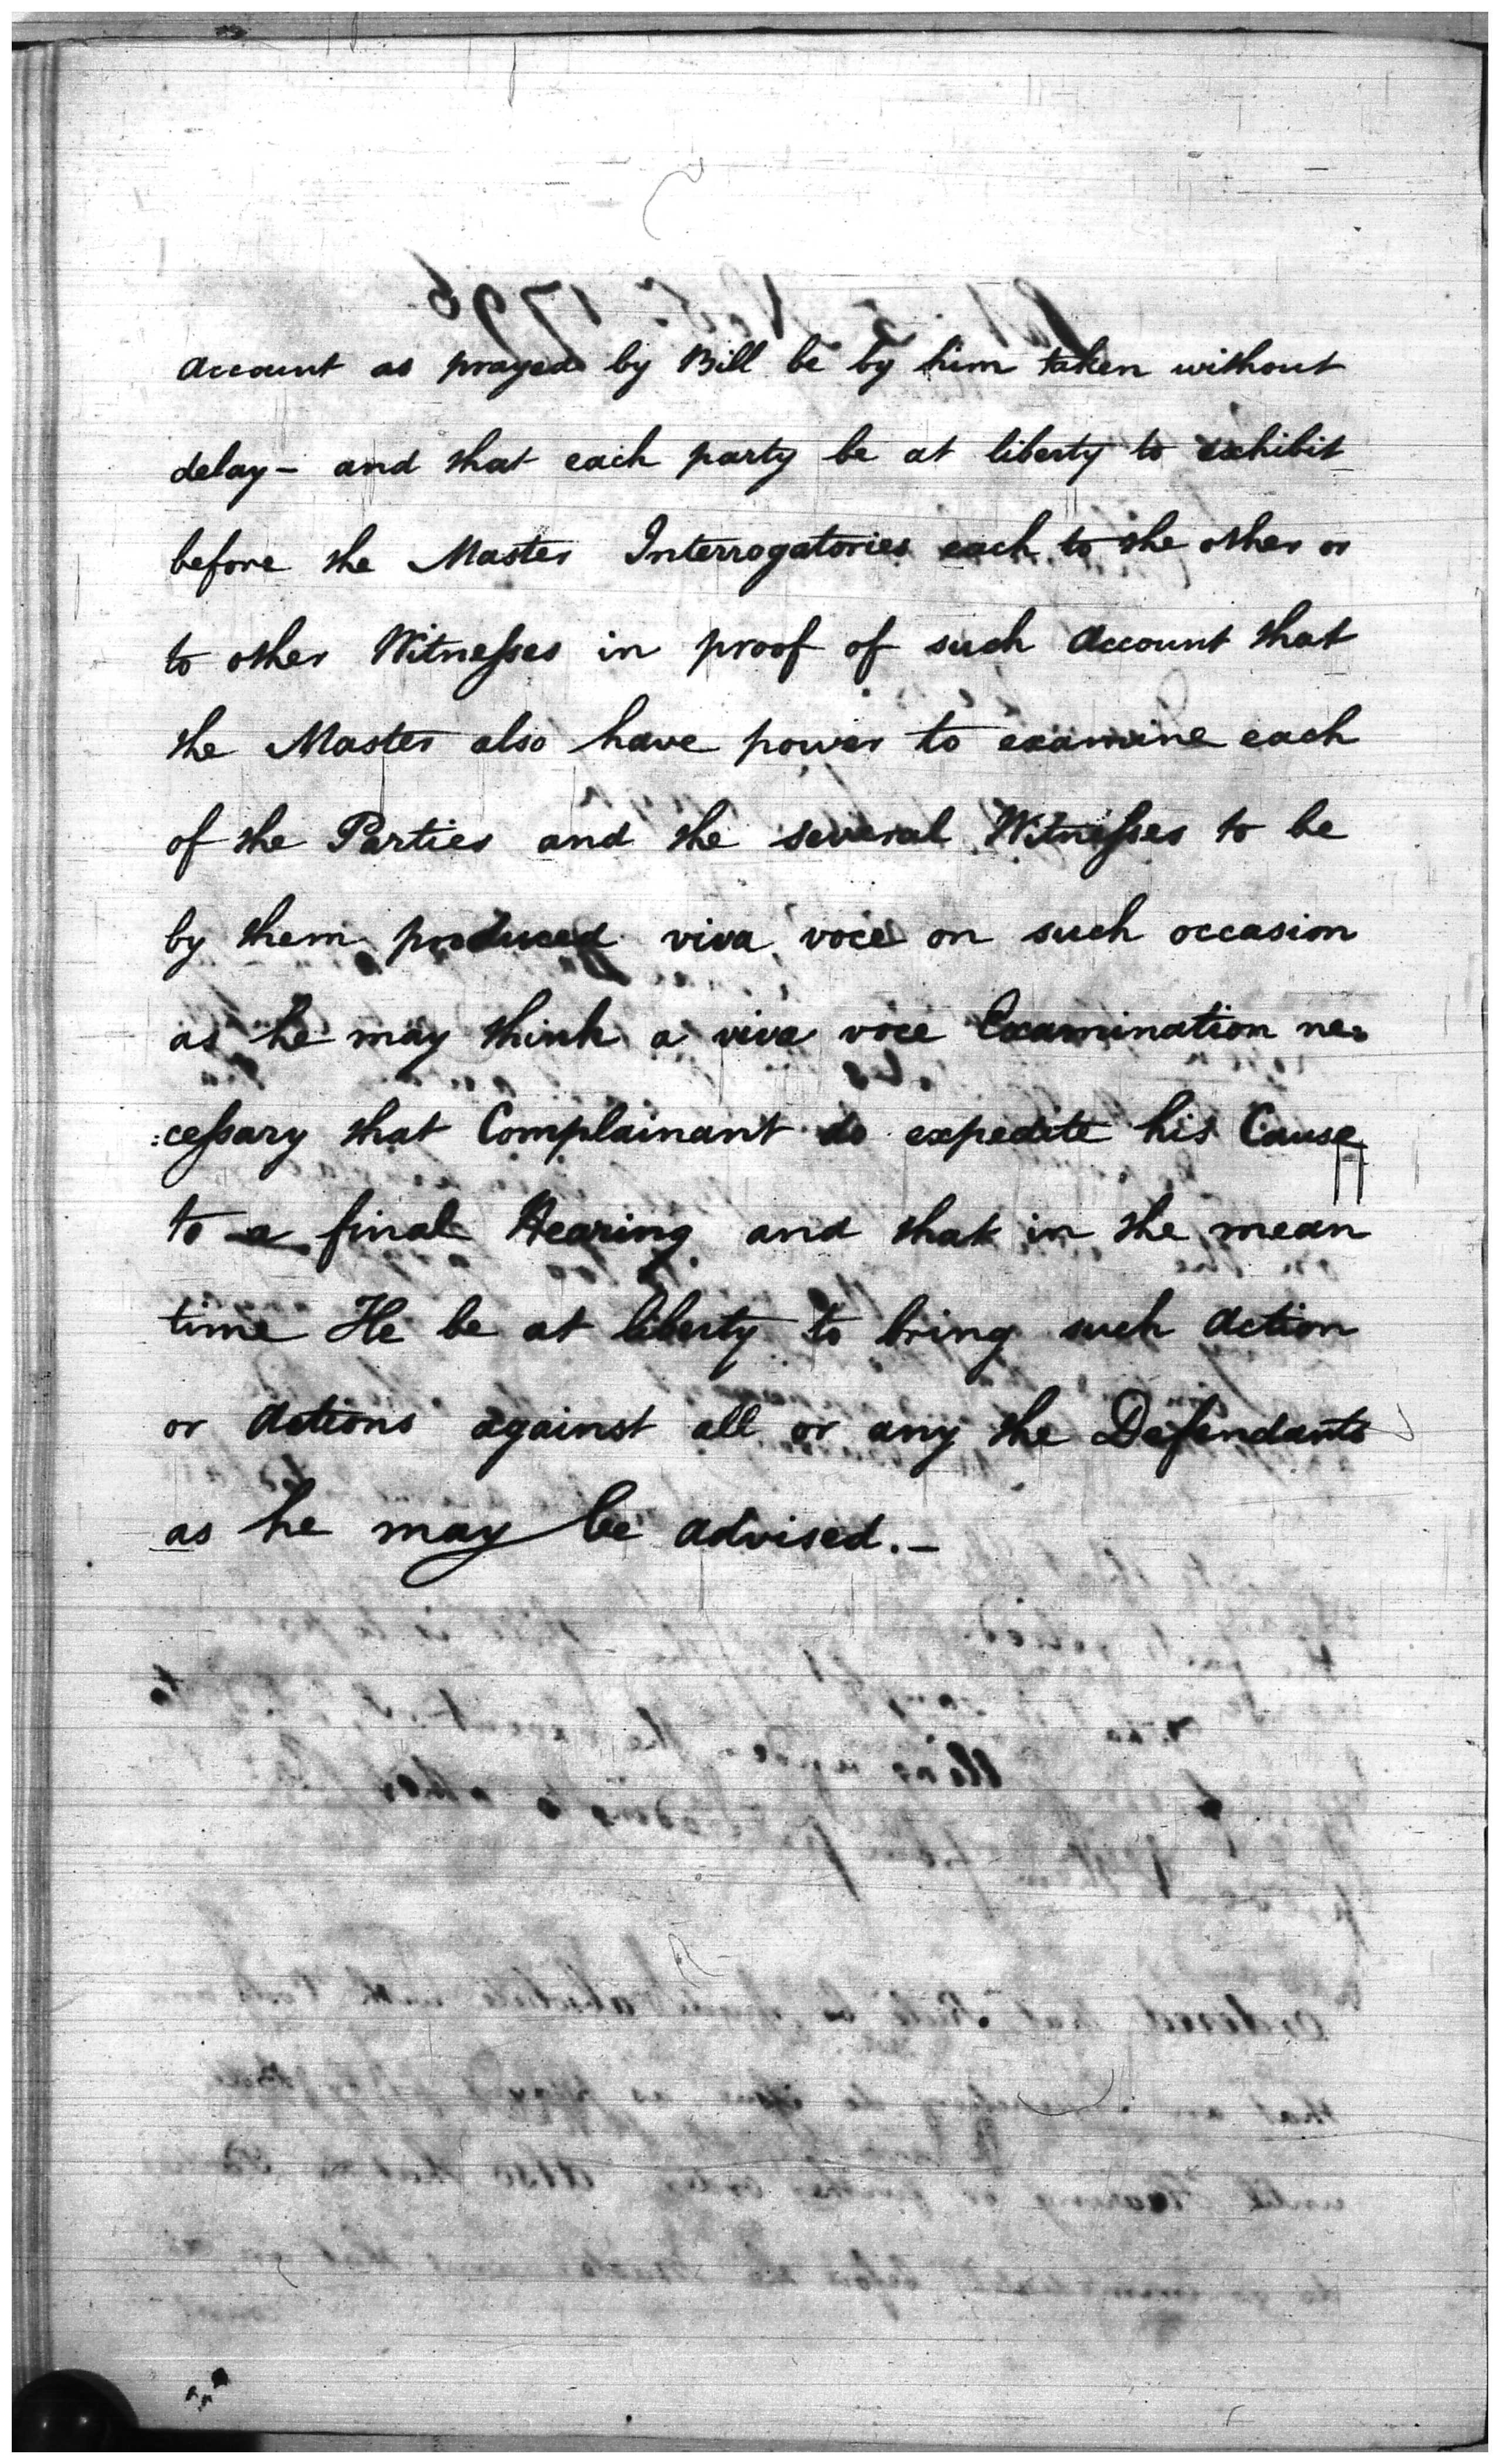 account as prayed by Bill be by him taken without
delay – and that each party be at liberty to exhibit
before the Master Interrogatories each to the other or
to other Witnesses in proof of such account that
the Master also have power to examine each
of the Parties and the several Witnesses to be
by them produced viva voce on such occasion
as he may think a viva voce Examination ne:
:cessary that Complainant do expedite his Cause
to a final Hearing and that in the mean
time He be at liberty to bring such action
or actions against all or any the Defendants
as he may be advised. –